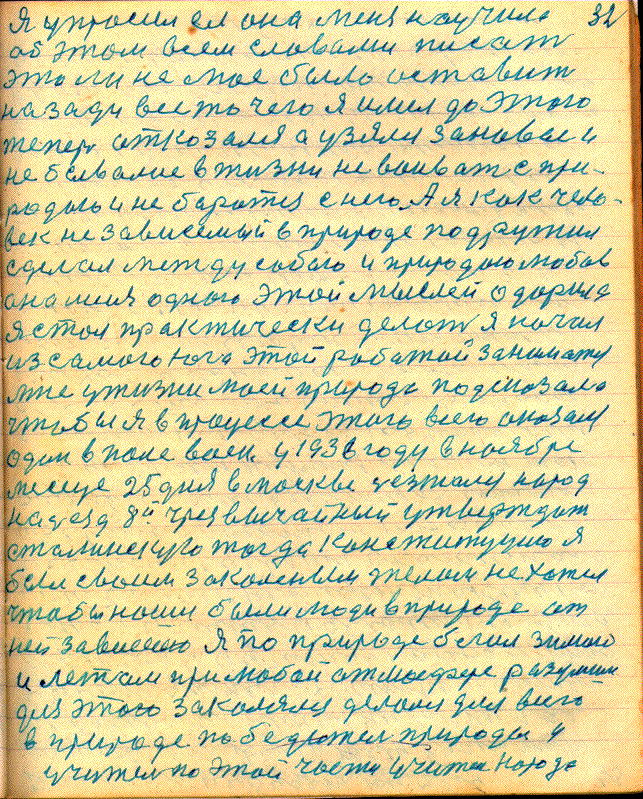 Я упросил ее она меня научила 32
об этом всем словами писат
это ли не мое было оставит
назади все то чего я имел до этого
тепер отказался а узялся за новое и
не бывалое в жизни не воюват с при-
родою и не баротся с нею. А я как чело-
век не зависемый в природе подружил
сделал между собою и природою любов
она меня одного этой мыслей одарила
я стал практически делат я начал
из самого юга этой работой заниматся
мне у жизни моей природа подсказала
чтобы я в процессе этого всего оказался
один в поле воен. у 1936 году в ноябре
месеце 25 дня в москве уезжался народ
на уезд 8й чрезвычайный утверждат
сталинскую тогда конституцию я
был своим закаленым телом не хотел
чтобы наши были люди в природе от
ней зависимо я по природе белил зимою
и летом при любой атмосфере разумом
для этого закалялся делался для всего
в природе победителем природы и
учителем по этой части учител народа